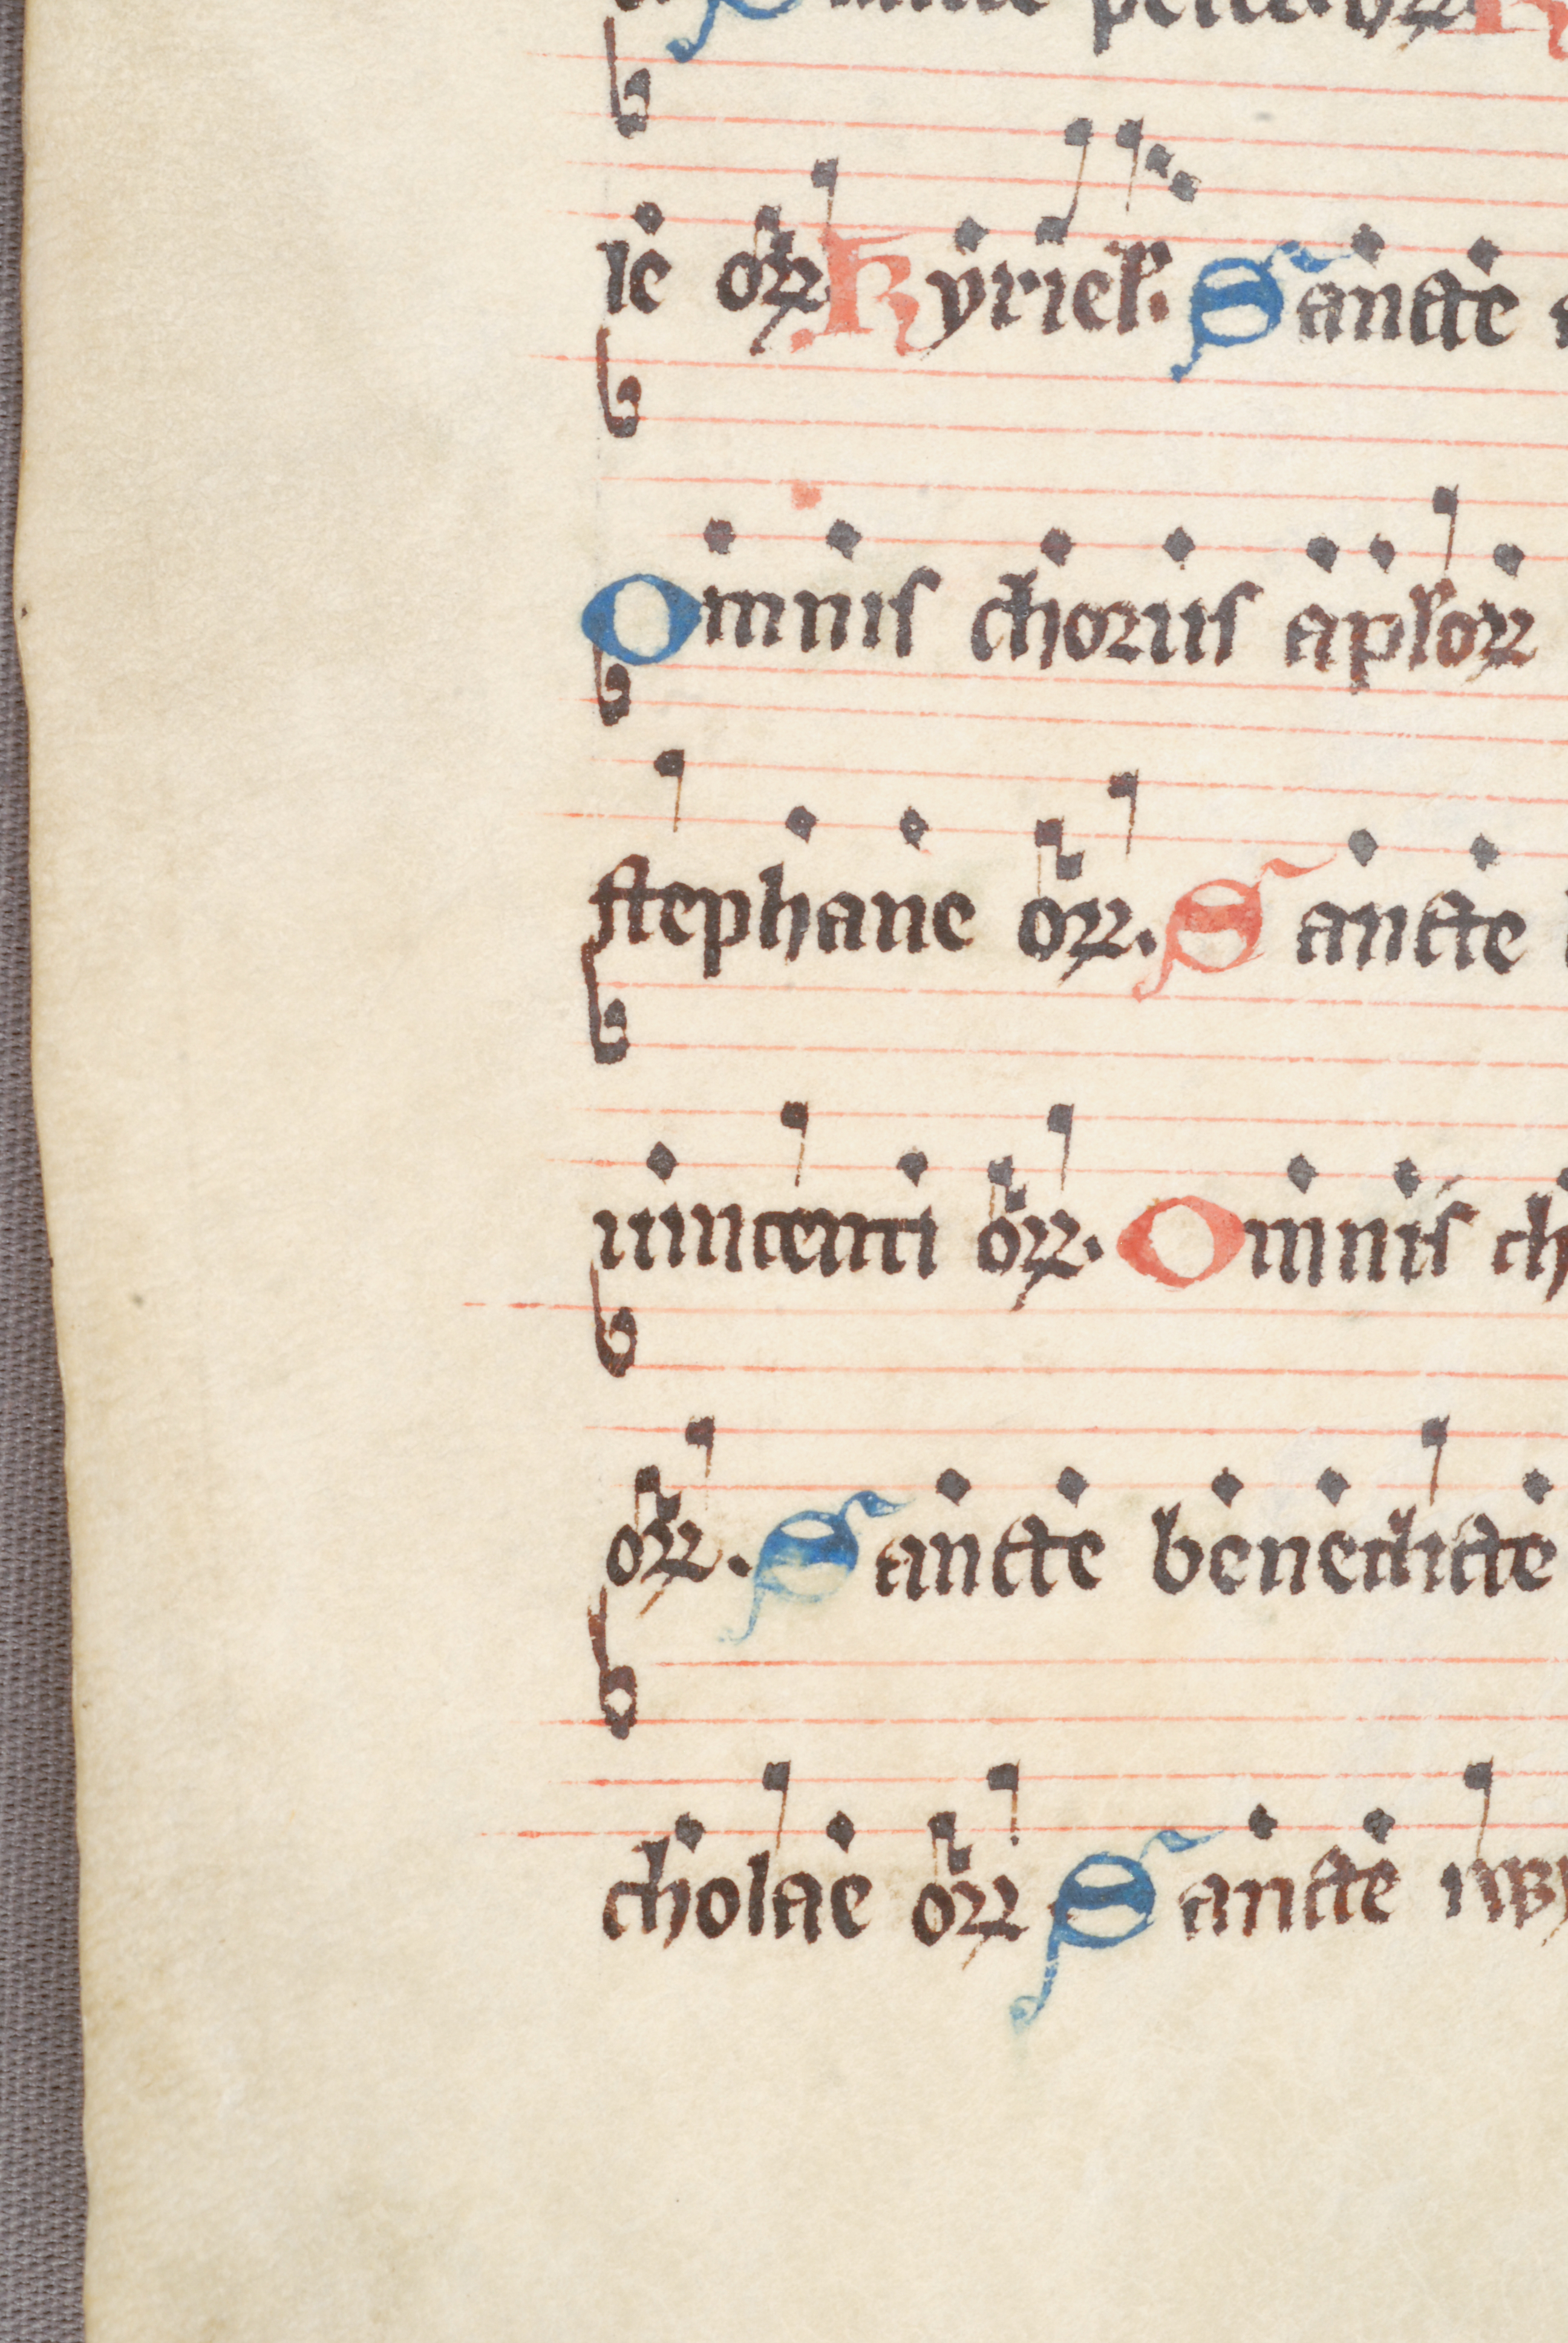 Sancte petre oꝝ K
le oꝝ Kyriel. Sancte
Omnis chorus aplorꝝ
stephane oꝝ. Sancte
uincenti oꝝ. Omnis ch
oꝝ. Sancte benedicte
cholae oꝝ Sancte